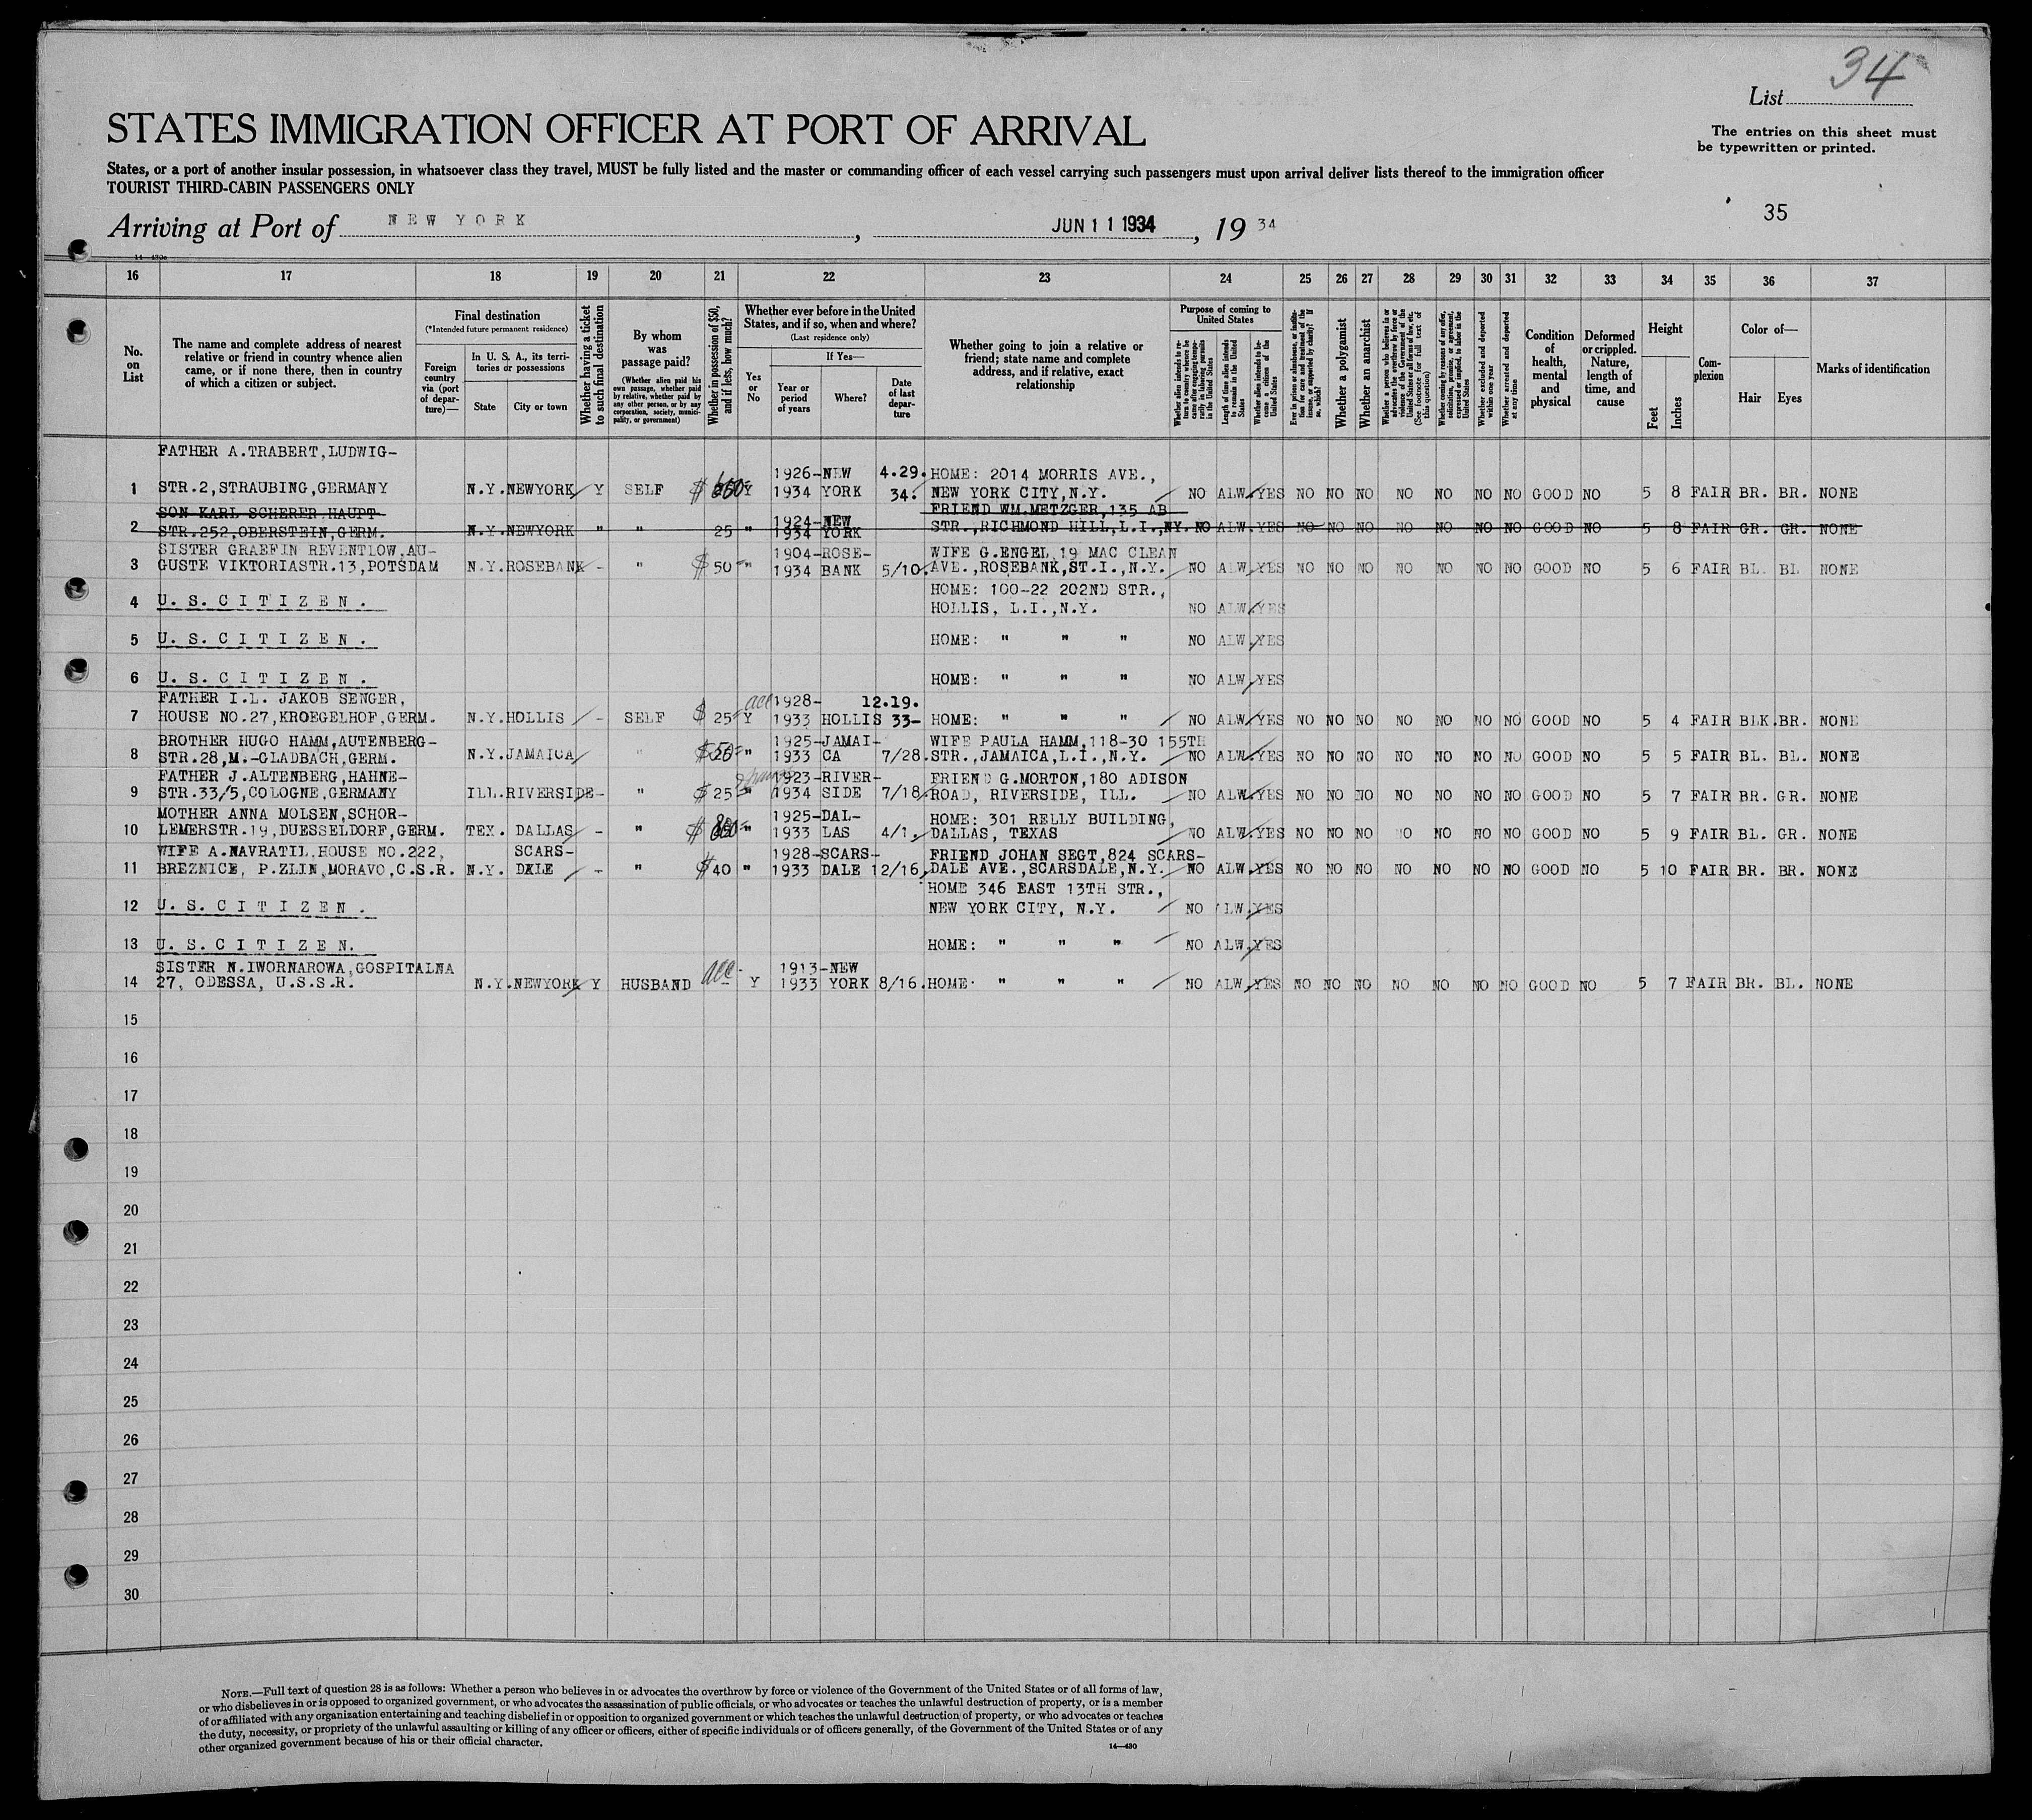 34
List
STATES IMMIGRATION OFFICER AT PORT OF ARRIVAL
The entries on this sheet must
be typewritten or printed.
States, or a port of another insular possession, in whatsoever class they travel, MUST be fully listed and the master or commanding officer of each vessel carrying such passengers must upon arrival deliver lists thereof to the immigration officer
TOURIST THIRD-CABIN PASSENGERS ONLY
35
Arriving at Port of NEW YORK, JUN 11 1934, 19 34
16 17 18 19 20 21 22 23 24 25 26 27 28 29 30 31 32 33 34 35 36 37
No. on List
The name and complete address of nearest relative or friend in country whence alien came, or if none there, then in country of which a citizen or subject.
Final destination
(*Intended future permanent residence)
Foreign country via (port of departure)—
In U. S. A., its territories or possessions
State City or town
Whether having a ticket to such final destination
By whom was passage paid?
(Whether alien paid his own passage, whether paid by relative, whether paid by any other person, or by any corporation, society, municipality, or government)
Whether in possession of $50, and if less, how much?
Whether ever before in the United States, and if so, when and where?
(Last residence only)
Yes or No
If Yes—
Year or period of years
Where?
Date of last departure
Whether going to join a relative or friend; state name and complete address, and if relative, exact relationship
Purpose of coming to United States
Whether alien intends to return to country whence he came after engaging temporarily in laboring pursuits in the United States
Length of time alien intends to remain in the United States
Whether alien intends to become a citizen of the United States
Ever in prison or almshouse, or institution for care and treatment of the insane, or supported by charity? If so, which?
Whether a polygamist
Whether an anarchist
Whether a person who believes in or advocates the overthrow by force or violence of the Government of the United States or all forms of law, etc. (See footnote for full text of this question)
Whether coming by reason of any offer, solicitation, promise, or agreement, expressed or implied, to labor in the United States
Whether excluded and deported within one year
Whether arrested and deported at any time
Condition of health, mental and physical
Deformed or crippled. Nature, length of time, and cause
Height
Feet Inches
Complexion
Color of—
Hair Eyes
Marks of identification
FATHER A.TRABERT,LUDWIG-
1926-NEW 4.29. HOME: 2014 MORRIS AVE.,
1 STR.2,STRAUBING,GERMANY N.Y. NEWYORK Y SELF $ Y 1934 YORK 34. NEW YORK CITY,N.Y. NO ALW. YES NO NO NO NO NO NO NO GOOD NO 5 8 FAIR BR. BR. NONE
SON KARL SCHERER HAUPT- 1924-NEW FRIEND WM.METZGER,135 AB
2 STR.252,OBERSTEIN,GERM. N.Y. NEWYORK " " 25 " 1934 YORK STR.,RICHMOND HILL,L.I.,NY. NO ALW. YES NO NO NO NO NO NO NO GOOD NO 5 8 FAIR GR. GR. NONE
SISTER GRAEFIN REVENTLOW,AU- 1904-ROSE- WIFE G.ENGEL 19 MAC CLEAN
3 GUSTE VIKTORIASTR.13,POTSDAM N.Y. ROSEBANK - " $ 50 " 1934 BANK 5/10. AVE.,ROSEBANK,ST.I.,N.Y. NO ALW. YES NO NO NO NO NO NO NO GOOD NO 5 6 FAIR BL. BL NONE
HOME: 100-22 202ND STR.,
4 U.S.CITIZEN. HOLLIS, L.I.,N.Y. NO ALW. YES
5 U.S.CITIZEN. HOME: " " " NO ALW. YES
6 U.S.CITIZEN. HOME: " " " NO ALW. YES
FATHER I.L. JAKOB SENGER, acc 1928- 12.19.
7 HOUSE NO.27,KROEGELHOF,GERM. N.Y. HOLLIS - SELF $ 25 Y 1933 HOLLIS 33- HOME: " " " NO ALW. YES NO NO NO NO NO NO NO GOOD NO 5 4 FAIR BLK. BR. NONE
BROTHER HUGO HAMM,AUTENBERG- 1925-JAMAI- WIFE PAULA HAMM,118-30 155TH
8 STR.28,M.-GLADBACH,GERM. N.Y. JAMAICA " $ " 1933 CA 7/28. STR.,JAMAICA,L.I.,N.Y. NO ALW. YES NO NO NO NO NO NO NO GOOD NO 5 5 FAIR BL. BL. NONE
FATHER J.ALTENBERG,HAHNE- 1923-RIVER- FRIEND G.MORTON,180 ADISON
9 STR.33/5,COLOGNE,GERMANY ILL. RIVERSIDE - " $ 25 " 1934 SIDE 7/18. ROAD, RIVERSIDE, ILL. NO ALW. YES NO NO NO NO NO NO NO GOOD NO 5 7 FAIR BR. GR. NONE
MOTHER ANNA MOLSEN,SCHOR- 1925-DAL- HOME: 301 RELLY BUILDING,
10 LEMERSTR.19,DUESSELDORF,GERM. TEX. DALLAS - " $ " 1933 LAS 4/1. DALLAS, TEXAS NO ALW. YES NO NO NO NO NO NO NO GOOD NO 5 9 FAIR BL. GR. NONE
WIFE A.NAVRATIL,HOUSE NO.222, SCARS- 1928-SCARS- FRIEND JOHAN SEGT,824 SCARS-
11 BREZNICE, P.ZLIN,MORAVO,C.S.R. N.Y. DALE - " $ 40 " 1933 DALE 12/16. DALE AVE.,SCARSDALE,N.Y. NO ALW. YES NO NO NO NO NO NO NO GOOD NO 5 10 FAIR BR. BR. NONE
HOME 346 EAST 13TH STR.,
12 U.S.CITIZEN. NEW YORK CITY, N.Y. NO ALW. YES
13 U.S.CITIZEN. HOME: " " " NO ALW. YES
SISTER N.IWORNAROWA,GOSPITALNA acc- 1913-NEW
14 27, ODESSA, U.S.S.R. N.Y. NEWYORK Y HUSBAND - Y 1933 YORK 8/16. HOME: " " " NO ALW. YES NO NO NO NO NO NO NO GOOD NO 5 7 FAIR BR. BL. NONE
15
16
17
18
19
20
21
22
23
24
25
26
27
28
29
30
NOTE.—Full text of question 28 is as follows: Whether a person who believes in or advocates the overthrow by force or violence of the Government of the United States or of all forms of law,
or who disbelieves in or is opposed to organized government, or who advocates the assassination of public officials, or who advocates or teaches the unlawful destruction of property, or is a member
of or affiliated with any organization entertaining and teaching disbelief in or opposition to organized government or which teaches the unlawful destruction of property, or who advocates or teaches
the duty, necessity, or propriety of the unlawful assaulting or killing of any officer or officers, either of specific individuals or of officers generally, of the Government of the United States or of any
other organized government because of his or their official character.
14—430